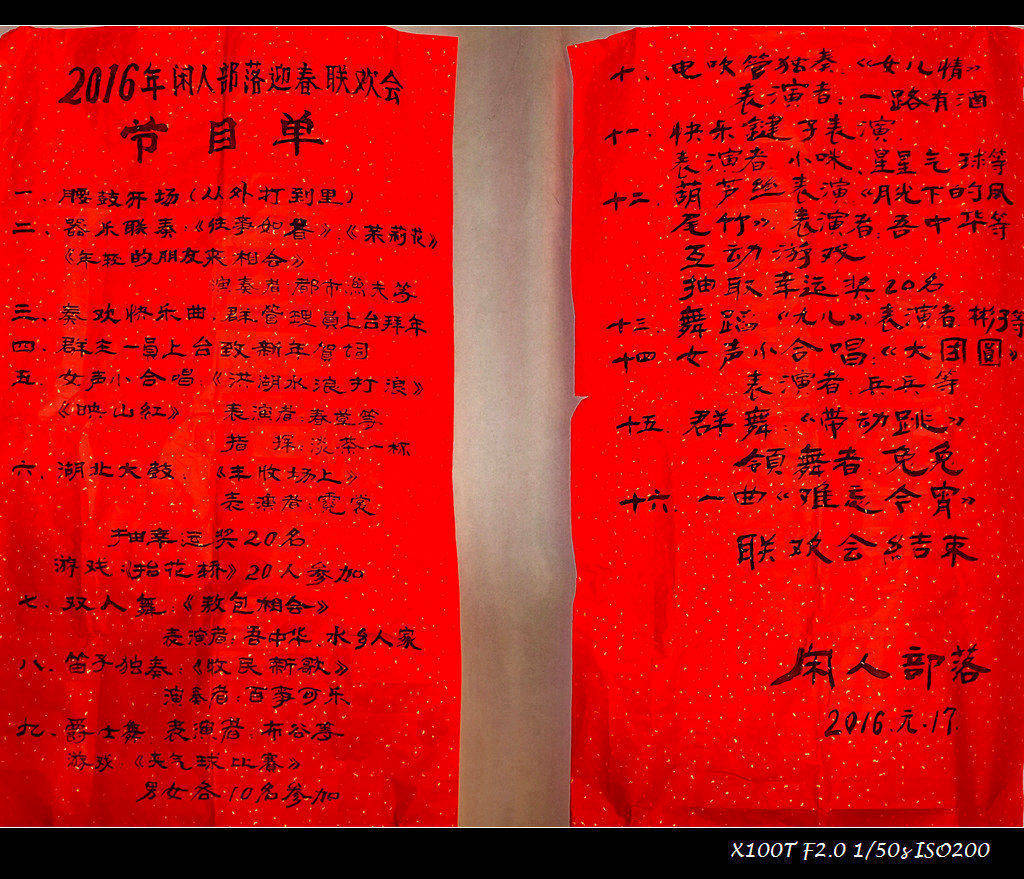 2016年闲人部落迎春联欢会
节目单
一、腰鼓开场(从外打到里)
二、器乐联奏:《往事如昔》、《茉莉花》
《年轻的朋友来相会》
演奏者:都市漁夫等
三、奏欢快乐曲,群管理員上台拜年
四、群主一員上台致新年賀词
五、女声小合唱:《洪湖水浪打浪》
《映山紅》 表演者:春莹等
指 挥:淡茶一杯
六、湖北大鼓:《丰收场上》
表演者:霓裳
抽幸运奖20名
游戏《抬花轿》20人参加
七、双人舞:《敖包相会》
表演者:吾中华 水乡人家
八、笛子独奏:《牧民新歌》
演奏者:百事可乐
九、爵士舞 表演者 布谷等
游戏《夹气球比赛》
男女各10名参加
十、电吹管独奏:《女儿情》
表演者:一路有酒
十一、快乐毽子表演
表演者 小咪、星星气球等
十二、葫芦丝表演《月光下的凤
尾竹》表演者,吾中华等
互动游戏
抽取幸运奖20名
十三、舞蹈《九儿》表演者 彬子等
十四、女声小合唱:《大团圓》
表演者 兵兵等
十五、群舞:《带动跳》
領舞者:兔兔
十六、一曲《难忘今宵》
联欢会结束
闲人部落
2016.元.17.
X100T F2.0 1/50s ISO200